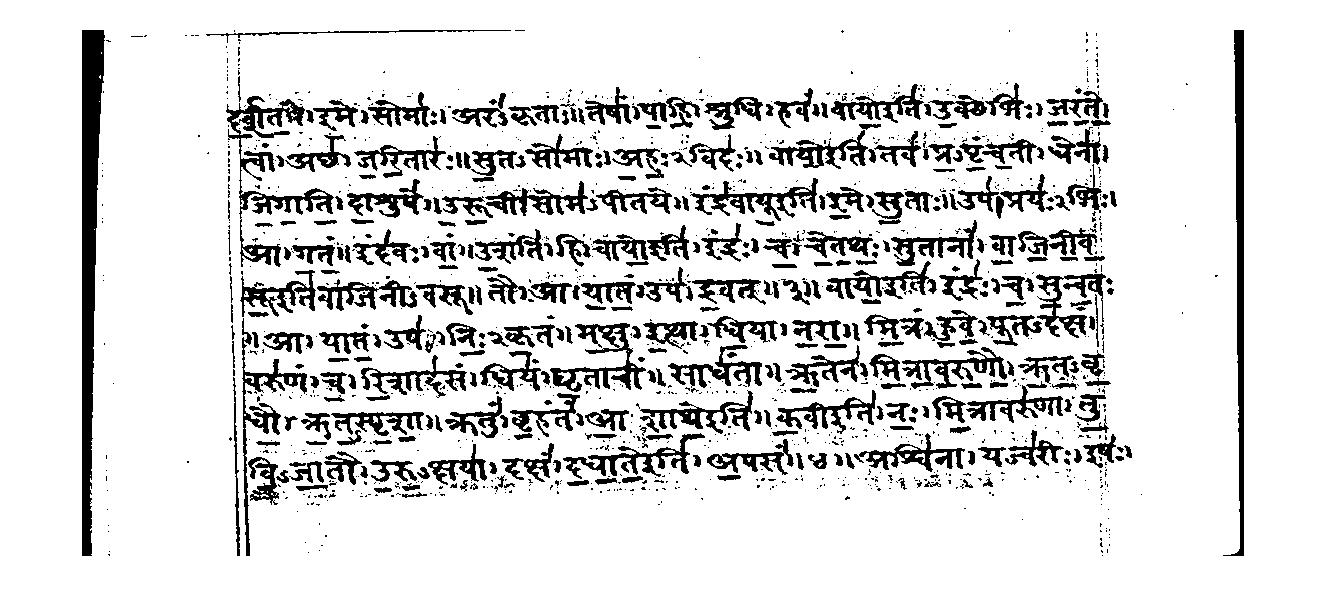 दर्शत॑। इ॒मे। सोमाः॑। अरं॑ऽकृताः॥ तेषां॑। पा॒हि॒। श्रु॒धि। हव॑॥ वायो॒इति॑। उ॒क्थेभिः॑। ज॒रं॒ते॒
त्वां। अच्छ॑। ज॒रि॒तारः॑॥ सु॒तऽसोमाः। अ॒हः॒२विदः॑॥ वायो॒इति॑। तव॑। प्र॒ऽपृं॒च॒ती। धेना॑।
जि॒गा॒ति॒। दा॒शुषे॑॥ उ॒रू॒ची। सोम॑ऽपीतये॥ इंद्र॑वायू॒इति॑। इ॒मे। सु॒ताः॥ उप॑। प्रयः॑२भिः।
आ। गतं॑॥ इंद॑वः। वां॒॥ उ॒शंति॑। हि॥ वायो॒इति॑। इंद्रः॑। च॒। चे॒त॒थः॒। सु॒तानां॑। वा॒जि॒नी॒व
सू॒इति॑वाजिनीऽवसू॥ तौ। आ। या॒तं॒। उप॑। द्र॒वत्॥ ३॥ वायो॒इति॑। इंद्रः॑। च॒। सु॒न्व॒तः
॥ आ। या॒तं॒। उप॑। निः॒२कृ॒तं॥ म॒क्षु। इ॒त्था। धि॒या। न॒रा॒॥ मि॒त्रं। हु॒वे॒। पू॒तऽद॑क्षं।
वरु॑णं। च॒। रि॒शाद॑सं। धियं॑। घृ॒ताचीं॑। सार्ध॑ता॥ ऋ॒तेन॑। मि॒त्रा॒व॒रु॒णौ॒। ऋ॒त॒ऽवृ॒
धौ॒। ऋ॒त॒स्पृ॒शा॒॥ क्रतुं॑। बृ॒हंतं॑। आ॒शा॒थे॒इति॑॥ क॒वीइति॑। नः॒। मि॒त्रावरु॑णा। तु॒
वि॒ऽजा॒तौ। उ॒रु॒ऽक्षया॑। दक्षं॑। द॒धा॒ते॒इति॑। अ॒पसं॑॥ ४॥ अश्वि॑ना। यज्व॑रीः। इषः॑।